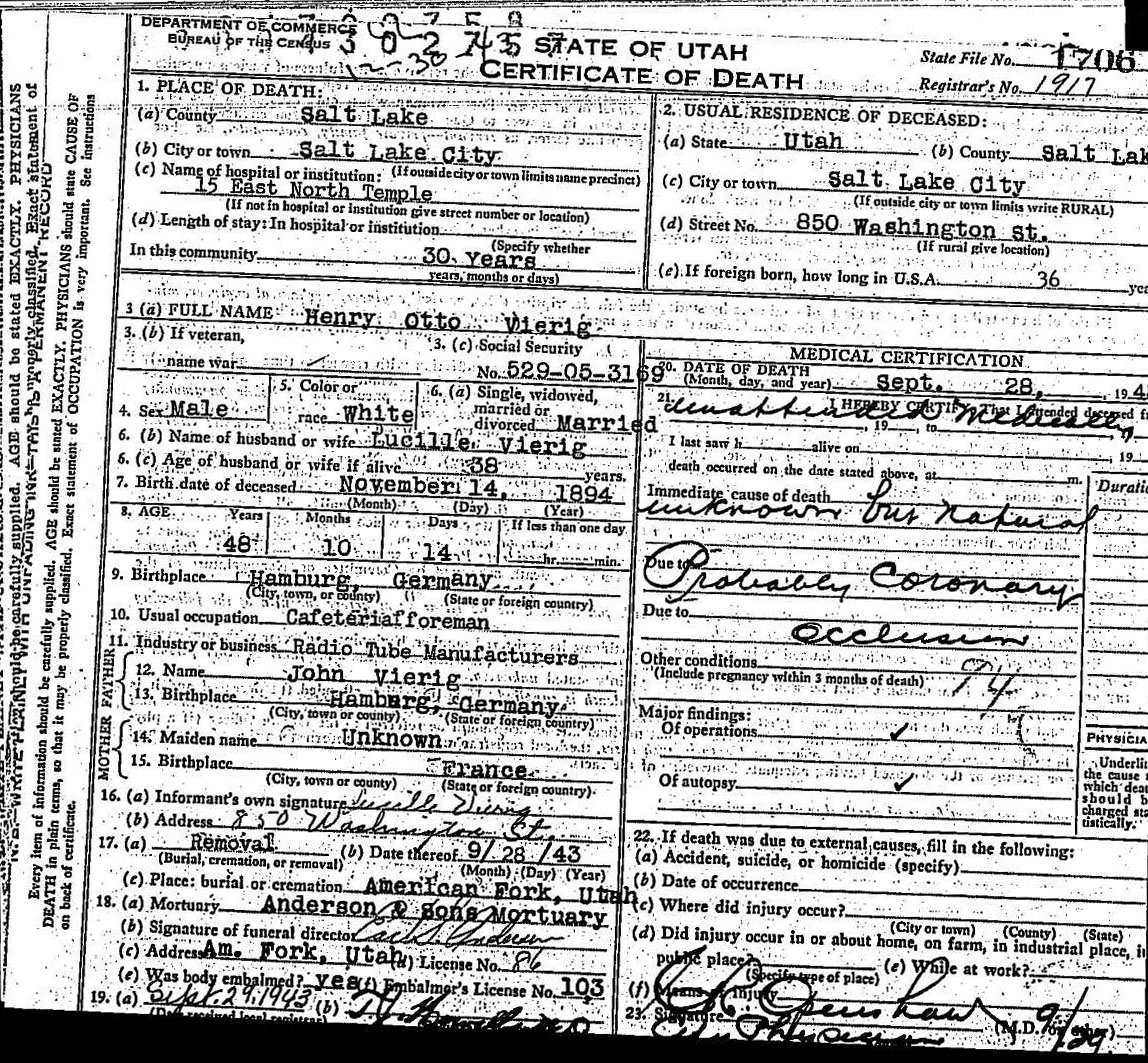 DEPARTMENT OF COMMERCE
BUREAU OF THE CENSUS
3 0 2 7 4 5 7
12-30
STATE OF UTAH
CERTIFICATE OF DEATH
State File No. 1706
Registrar's No. 1917
1. PLACE OF DEATH:
(a) County Salt Lake
(b) City or town Salt Lake City
(c) Name of hospital or institution: (If outside city or town limits name precinct)
15 East North Temple
(If not in hospital or institution give street number or location)
(d) Length of stay: In hospital or institution
(Specify whether
In this community 30 years
years, months or days)
2. USUAL RESIDENCE OF DECEASED:
(a) State Utah (b) County Salt Lak
(c) City or town Salt Lake City
(If outside city or town limits write RURAL)
(d) Street No. 850 Washington St.
(If rural give location)
(e) If foreign born, how long in U.S.A. 36 yea
3 (a) FULL NAME Henry Otto Vierig
3. (b) If veteran,
name war
3. (c) Social Security
No. 529-05-3169
4. Sex Male
5. Color or
race White
6. (a) Single, widowed,
married or
divorced Married
6. (b) Name of husband or wife Lucille Vierig
6. (c) Age of husband or wife if alive 38 years.
7. Birth date of deceased November 14, 1894
(Month) (Day) (Year)
8. AGE Years Months Days If less than one day
48 10 14 hr. min.
9. Birthplace Hamburg, Germany
(City, town, or county) (State or foreign country)
10. Usual occupation Cafeteria foreman
11. Industry or business Radio Tube Manufacturers
FATHER
12. Name John Vierig
13. Birthplace Hamburg, Germany
(City, town or county) (State or foreign country)
MOTHER
14. Maiden name Unknown
15. Birthplace France
(City, town or county) (State or foreign country)
16. (a) Informant's own signature Lucille Vierig
(b) Address 850 Washington St.
17. (a) Removal (b) Date thereof 9/28/43
(Burial, cremation, or removal) (Month) (Day) (Year)
(c) Place: burial or cremation American Fork, Utah
18. (a) Mortuary Anderson & Sons Mortuary
(b) Signature of funeral director
(c) Address Am. Fork, Utah (d) License No. 86
(e) Was body embalmed? yes (f) Embalmer's License No. 103
19. (a) Sept. 29, 1943 (b)
(Date received local registrar)
MEDICAL CERTIFICATION
20. DATE OF DEATH
(Month, day, and year) Sept. 28, 194
21. I HEREBY CERTIFY That I attended deceased fr
unattended medically
, 19 , to
I last saw h alive on , 19
death occurred on the date stated above, at m.
Duratio
Immediate cause of death
unknown but natural
Due to Probably Coronary
Due to
occlusion
Other conditions
(Include pregnancy within 3 months of death) 94
Major findings:
Of operations ✓
Of autopsy ✓
PHYSICIA
Underli
the cause
which deat
should b
charged sta
tistically.
22. If death was due to external causes, fill in the following:
(a) Accident, suicide, or homicide (specify)
(b) Date of occurrence
(c) Where did injury occur?
(City or town) (County) (State)
(d) Did injury occur in or about home, on farm, in industrial place, i
public place? (e) While at work?
(Specify type of place)
(f) Means of injury
23. Signature (M.D. or other) 9/29
City Physician
Every item of information should be carefully supplied. AGE should be stated EXACTLY. PHYSICIANS should state CAUSE OF
DEATH in plain terms, so that it may be properly classified. Exact statement of OCCUPATION is very important. See instructions
on back of certificate.